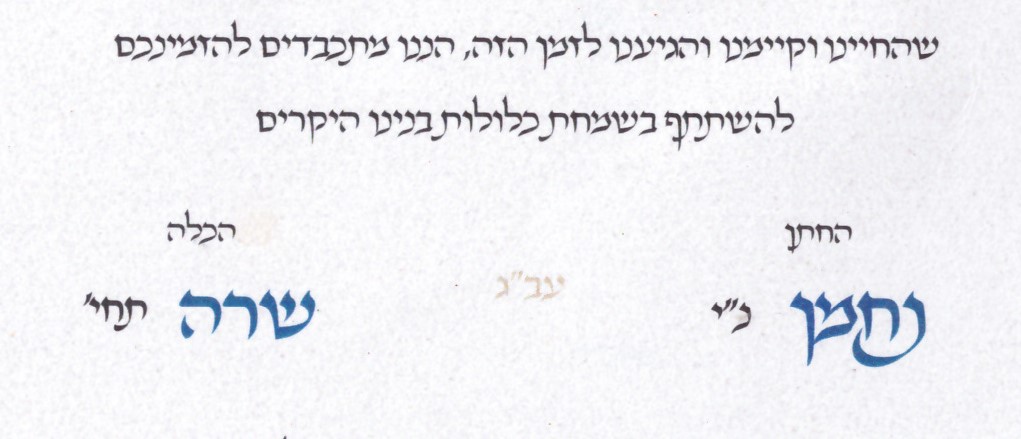 שהחיינו וקיימנו והגיענו לזמן הזה, הננו מתכבדים להזמינכם
להשתתף בשמחת כלולות בנינו היקרים
החתן
הכלה
נחמן נ"י
עב"ג
שרה תחי'